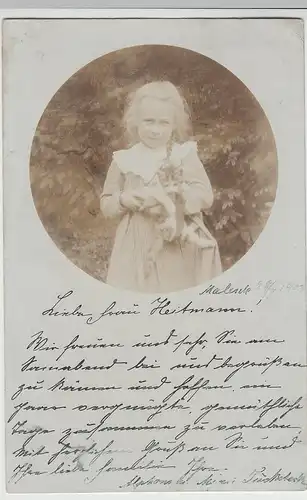 Malente
Liebe Frau Heitmann!
Wir freuen uns sehr, Sie am
Sonnabend bei uns begrüßen
zu können und hoffen, ein
paar vergnügte, gemütliche
Tage zusammen zu verleben.
Mit herzlichem Gruß an Sie und
Ihre liebe Familie Ihre